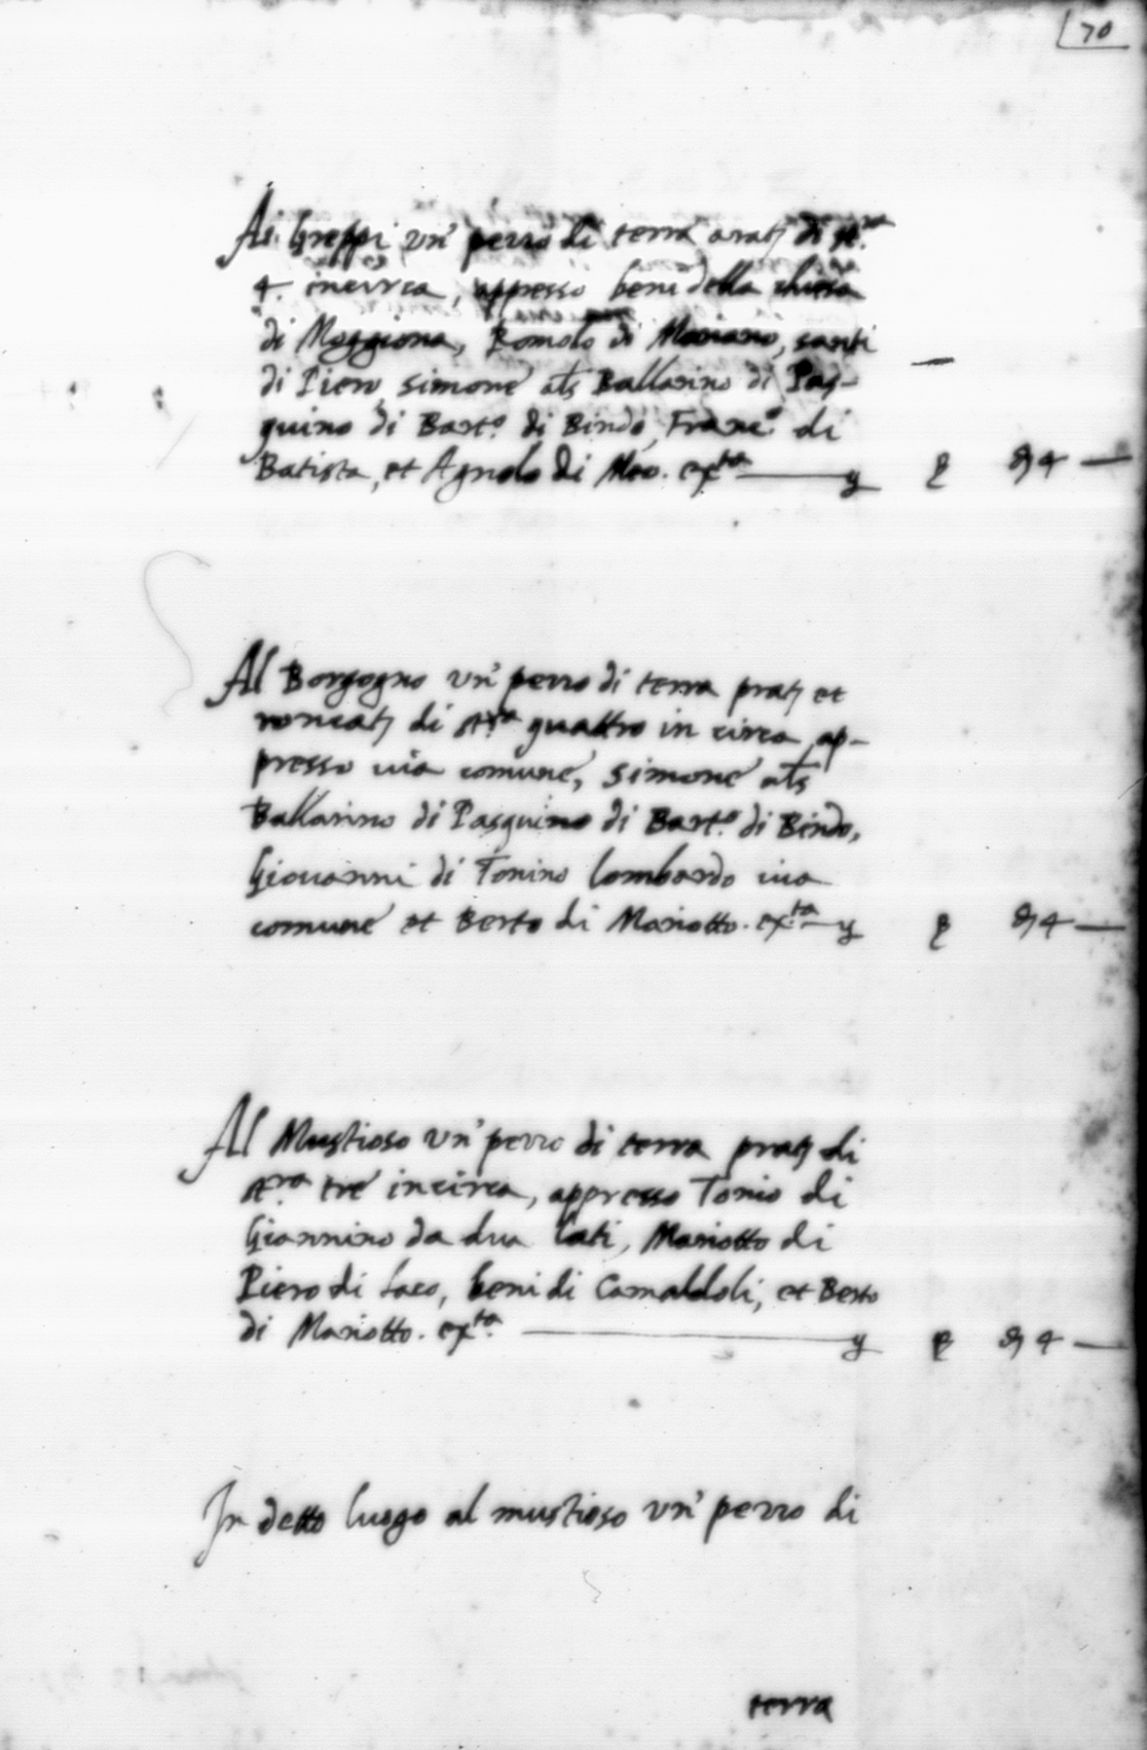 70
Ai Greppi un' pezzo di terra arat; di st.ra
4. incirca, appresso beni della chiesa
di Moggiona, Romolo di Mariano, santi
di Piero, simone als Ballarino di Pas-
quino di Bart.o di Bindo, Franc.o di
Batista, et Agnolo di Meo. ex.ta
4 —
Al Borgogno un' pezzo di terra prat; et
roncat; di st.ra quattro in circa, ap-
presso via comune, simone als
Ballarino di Pasquino di Bart.o di Bindo,
Giovanni di Tonino lombardo via
comune et Berto di Mariotto. ex.ta
4 —
Al Mustioso un' pezzo di terra prat; di
st.ra tre incirca, appresso Tonio di
Giannino da dua lati, Mariotto di
Piero di Iaco, beni di Camaldoli, et Berto
di Mariotto. ex.ta
4 —
In detto luogo al mustioso un' pezzo di
terra